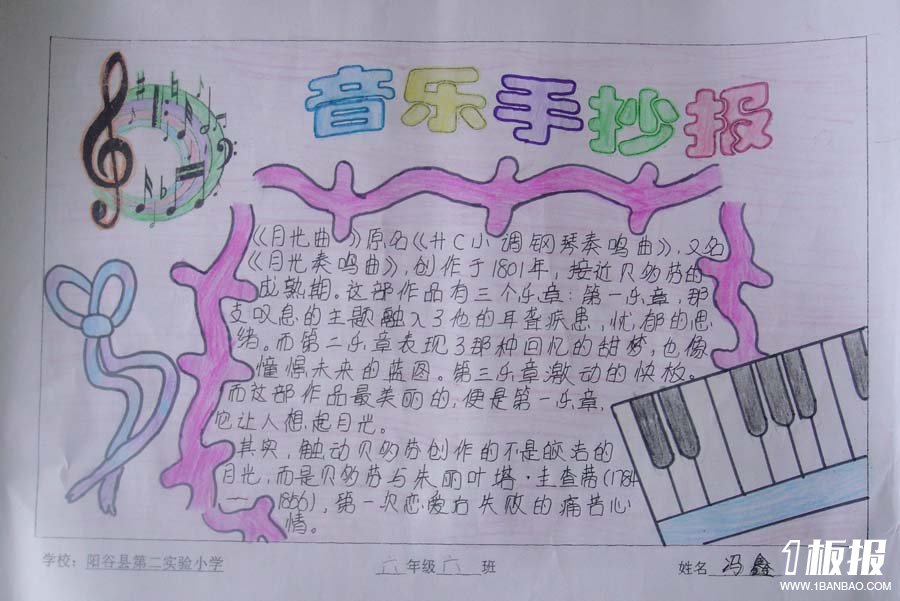 音乐手抄报
《月光曲》原名《升C小调钢琴奏鸣曲》，又名
《月光奏鸣曲》，创作于1801年，接近贝多芬的
成熟期。这部作品有三个乐章：第一乐章，那
支叹息的主题融入了他的耳聋疾患，忧郁的思
绪。而第二乐章表现了那种回忆的甜梦，也像
憧憬未来的蓝图。第三乐章激动的快板。
而这部作品最美丽的，便是第一乐章，
它让人想起月光。
其实，触动贝多芬创作的不是皎洁的
月光，而是贝多芬与朱丽叶塔·圭查蒂(1784
—1856)，第一次恋爱后失败的痛苦心
情。
学校：阳谷县第二实验小学 六年级六班 姓名 冯鑫
1板报
WWW.1BANBAO.COM